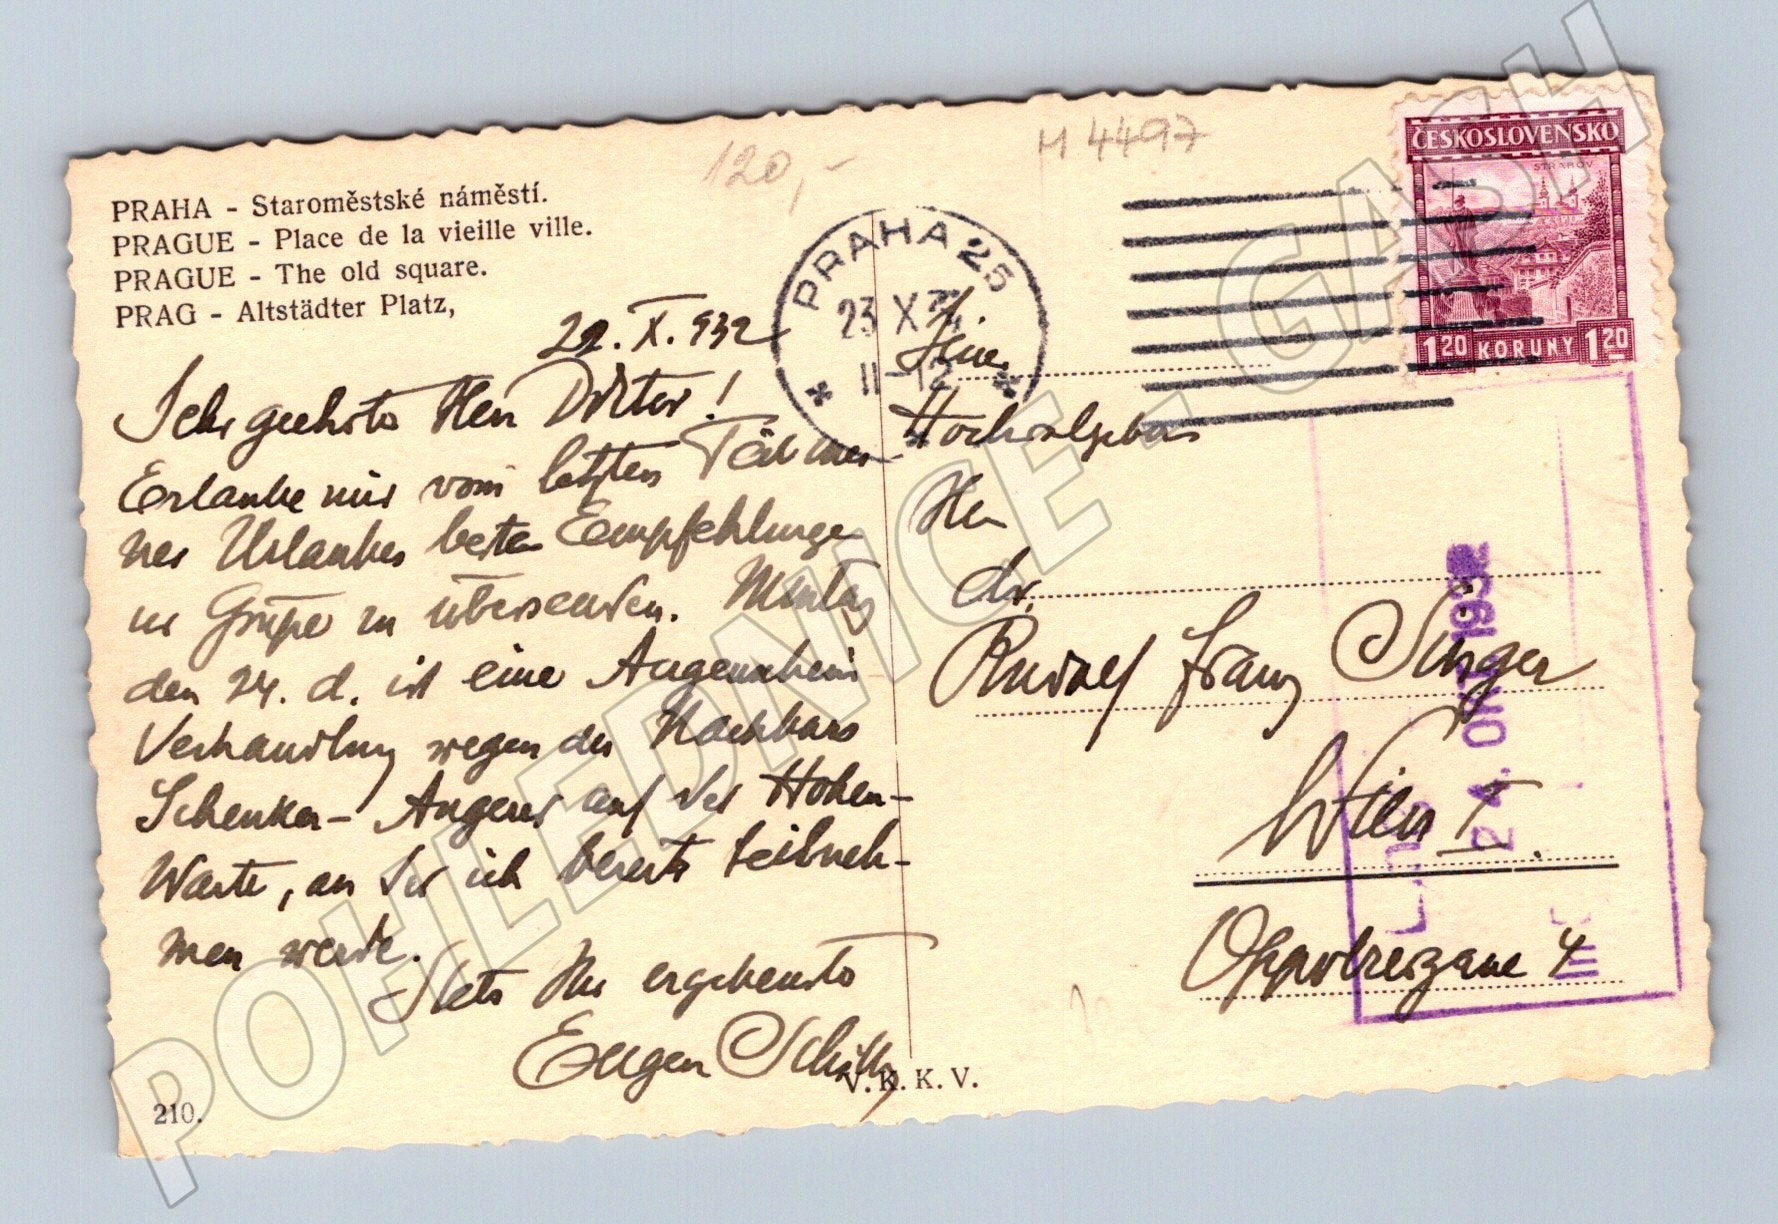 120,-
M 4497
PRAHA - Staroměstské náměstí.
PRAGUE - Place de la vieille ville.
PRAGUE - The old square.
PRAG - Altstädter Platz,
ČESKOSLOVENSKO
STRAHOV
1 20 KORUNY 1 20
PRAHA 25
23 X
11-12
22. X. 932
Sehr geehrter Herr Doktor!
Erlaube mir vom letzten
Urlaubes besten Empfehlungen
zu übersenden. Montag
den 24. d. ist eine Augenschein
Verhandlung wegen des Nachbars
Schenker- Angerer auf der Hohen-
Warte, an der ich bereits teilneh-
men werde.
Stets Ihr ergebenster
Eugen
Hochwolgeboren
Herr
dr.
Rudolf Franz Singer
Wien I.
4
24. OKT. 1932
V. K. K. V.
210.
POHLEDNICE - GASH